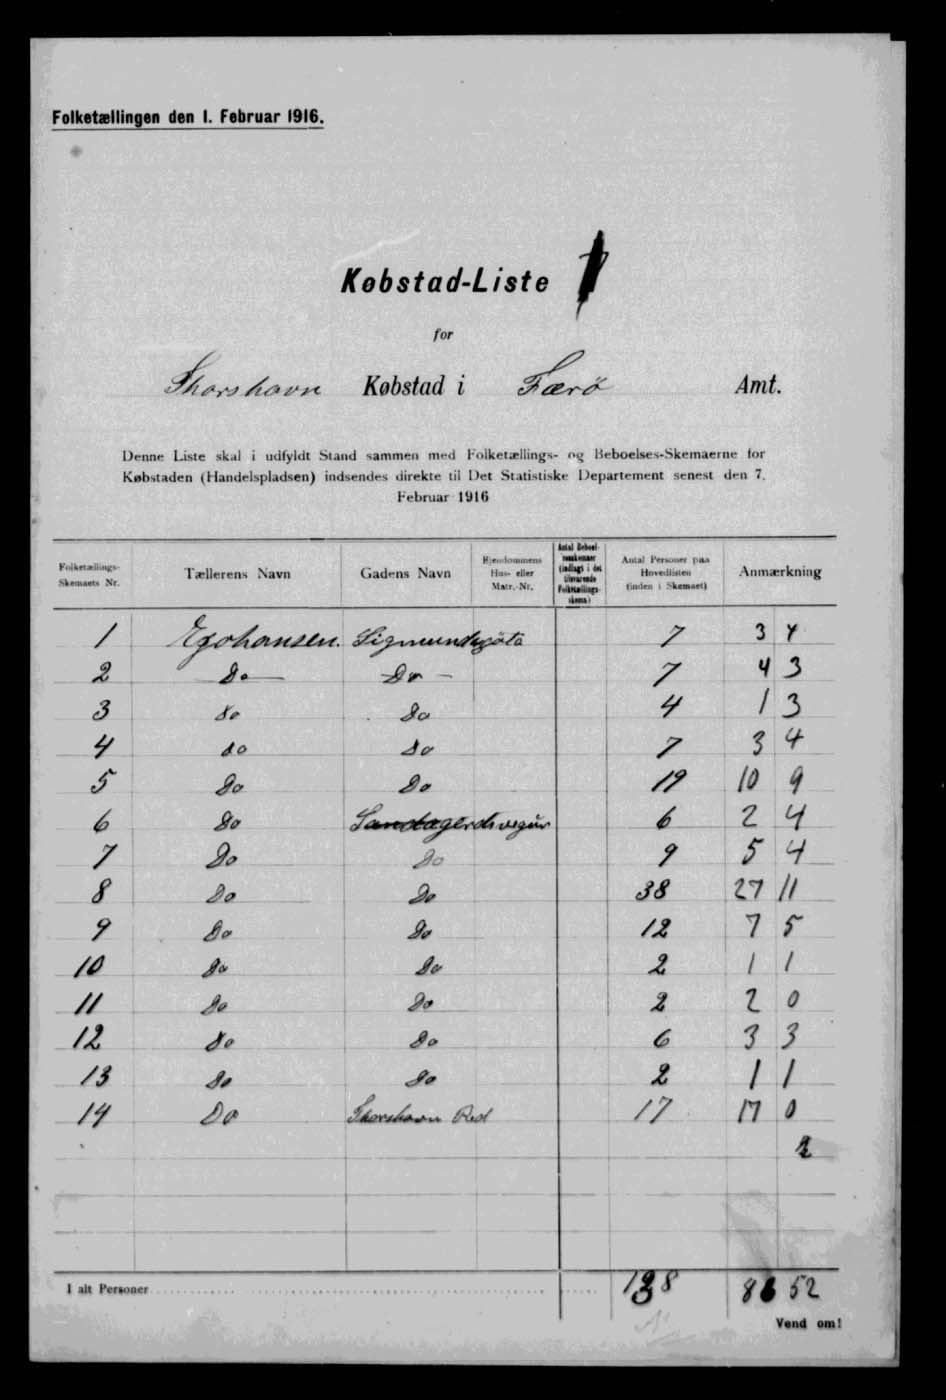 Folketællingen den 1. Februar 1916.
Købstad-Liste
for
Thorshavn Købstad i Færö Amt.
Denne Liste skal i udfyldt Stand sammen med Folketællings- og Beboelses-Skemaerne for
Købstaden (Handelspladsen) indsendes direkte til Det Statistiske Departement senest den 7.
Februar 1916
Folketællings-Skemaets Nr. Tællerens Navn Gadens Navn Ejendommens Hus- eller Matr.-Nr. Antal Beboelsesskemaer (indlagt i det tilsvarende Folketællingsskema) Antal Personer paa Hovedlisten (inden i Skemaet) Anmærkning
1 EJohansen. Sigmundsgöta 7 3 4
2 Do Do 7 4 3
3 do Do 4 1 3
4 do do 7 3 4
5 Do Do 19 10 9
6 Do Sandagerdsvegur 6 2 4
7 Do Do 9 5 4
8 Do Do 38 27 11
9 Do Do 12 7 5
10 Do Do 2 1 1
11 Do Do 2 2 0
12 Do Do 6 3 3
13 Do Do 2 1 1
14 Do Thorshavn Red 17 17 0
I alt Personer 138 86 52
Vend om!